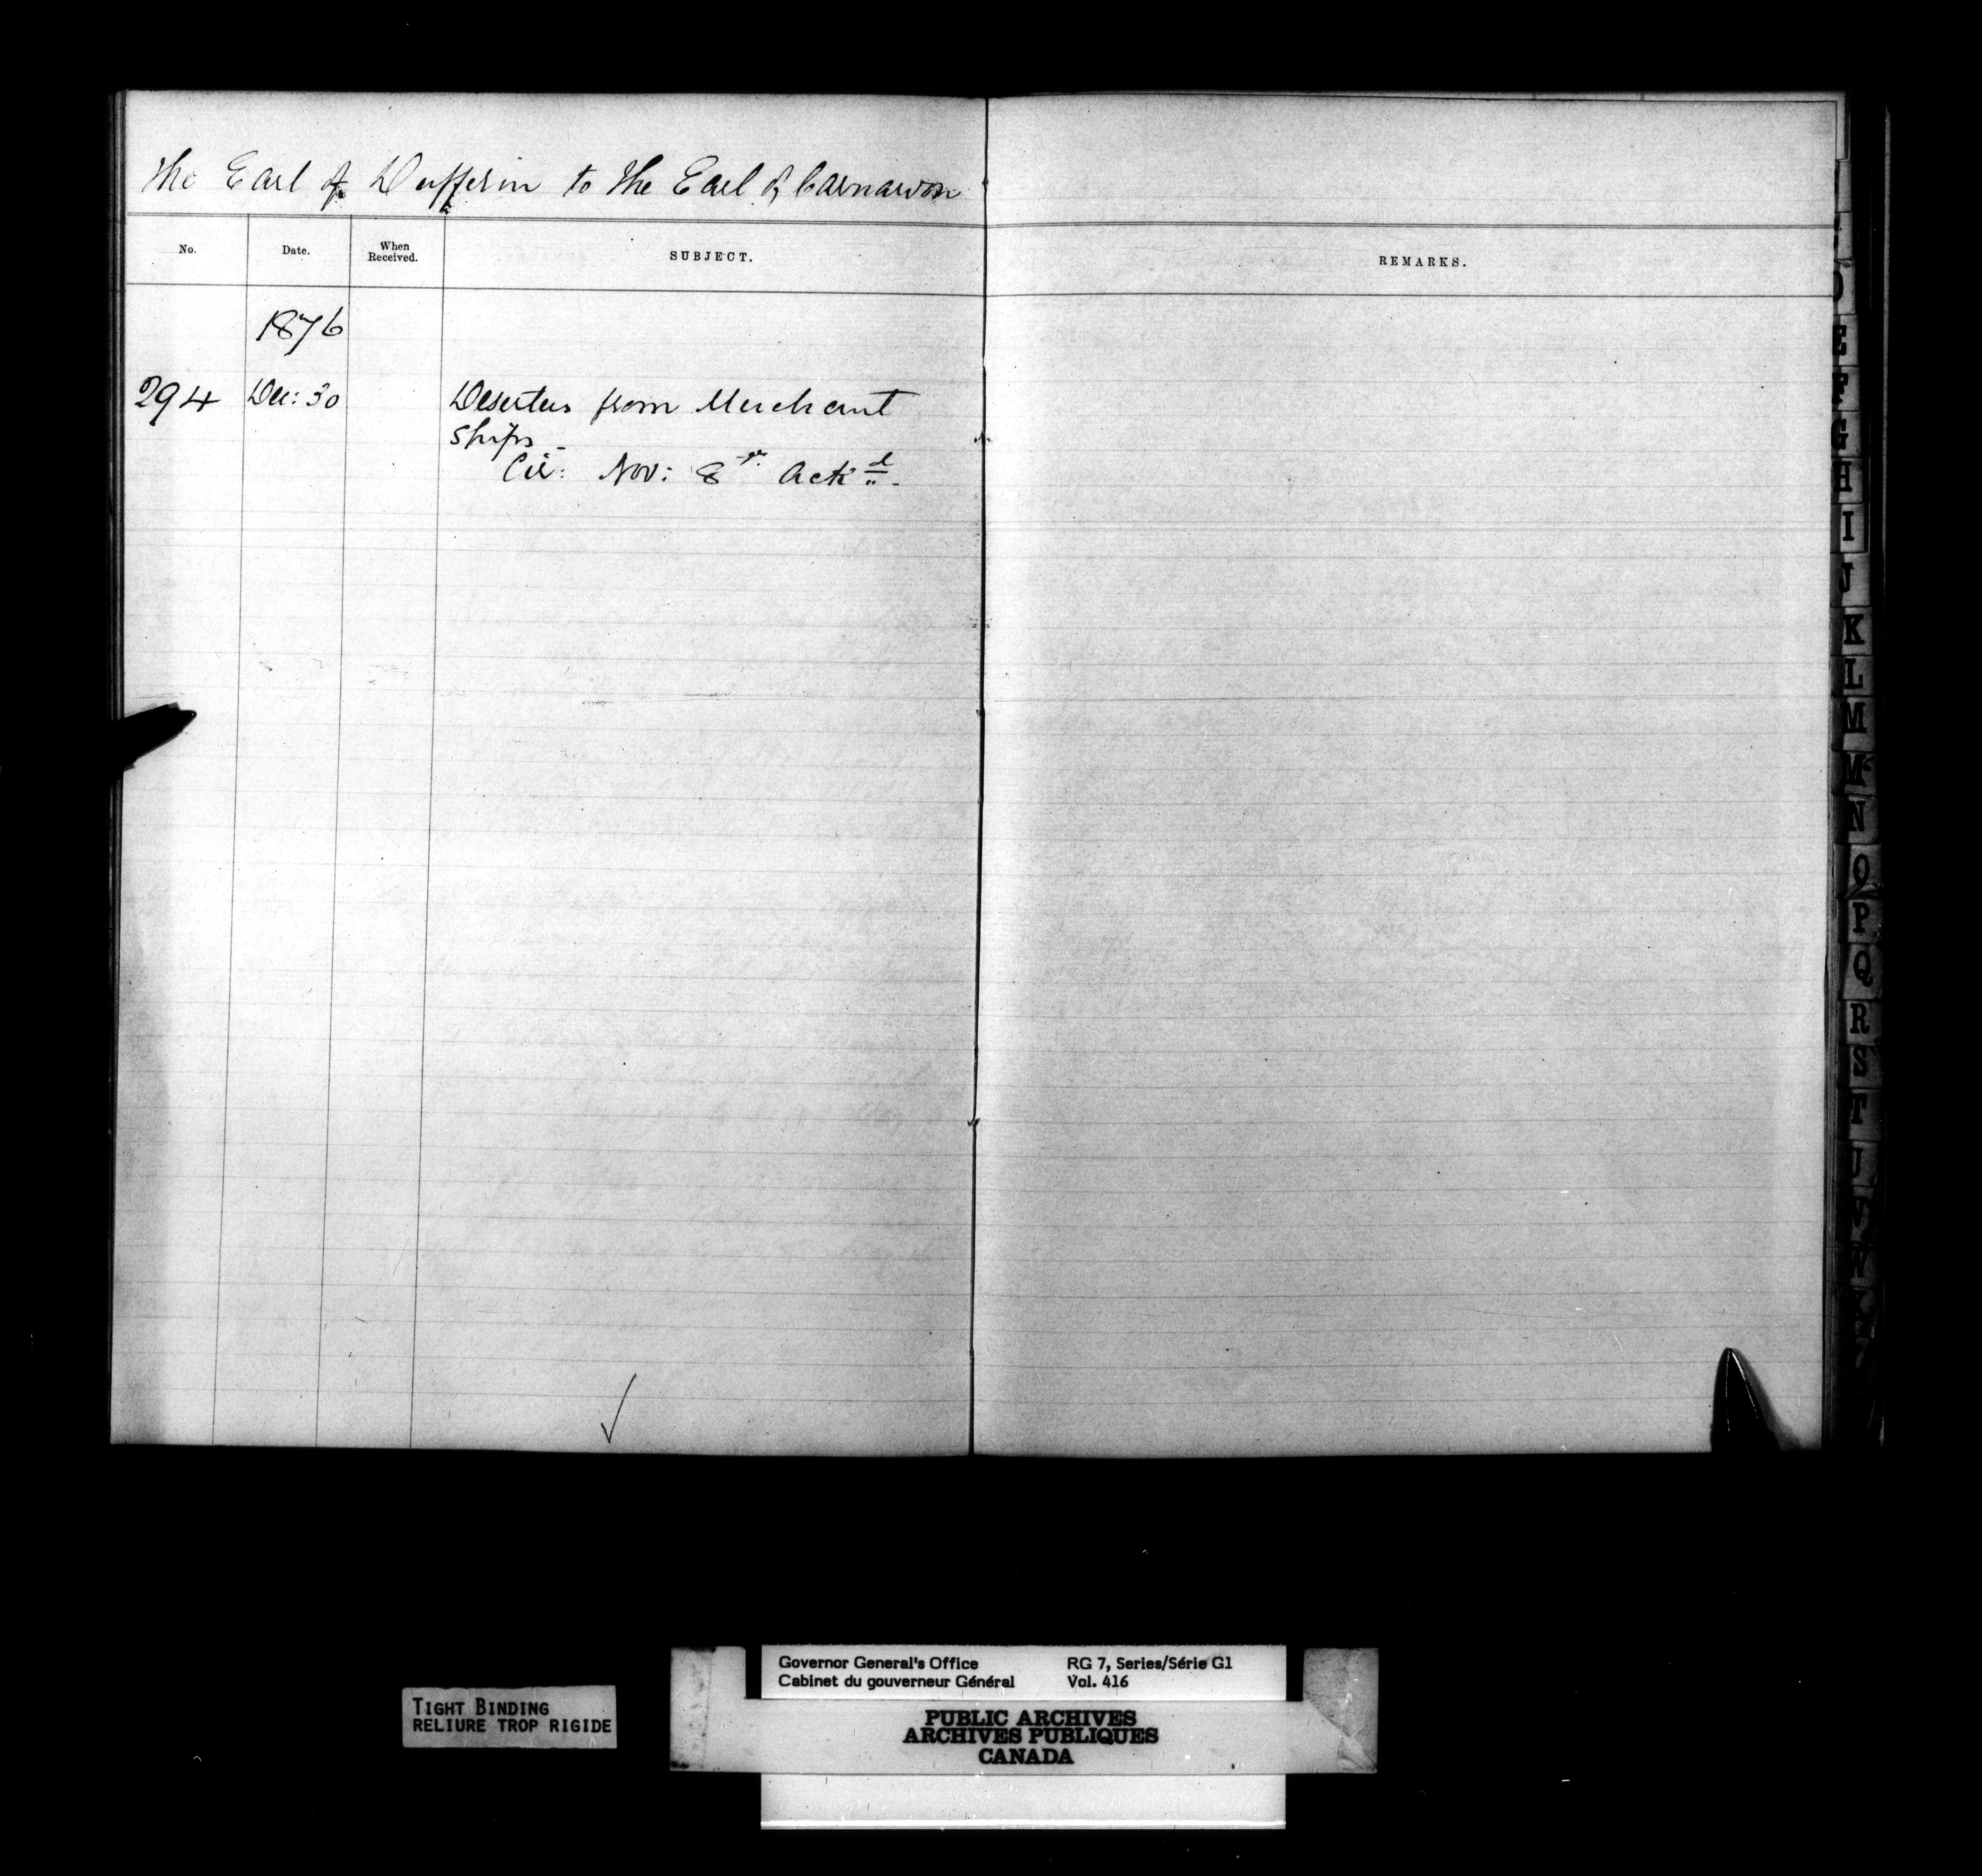 The Earl of Dufferin to The Earl of Carnarvon
No. Date. When Received. SUBJECT. REMARKS.
1876
294 Dec: 30 Deserters from Merchant
Ships_
Cir: Nov: 8 Ackd.
E
F
G
H
I
J
K
L
M
Mc
N
O
P
Q
R
S
T
U
V
W
Governor General's Office RG 7, Series/Série G1
Cabinet du gouverneur Général Vol. 416
TIGHT BINDING
RELIURE TROP RIGIDE
PUBLIC ARCHIVES
ARCHIVES PUBLIQUES
CANADA